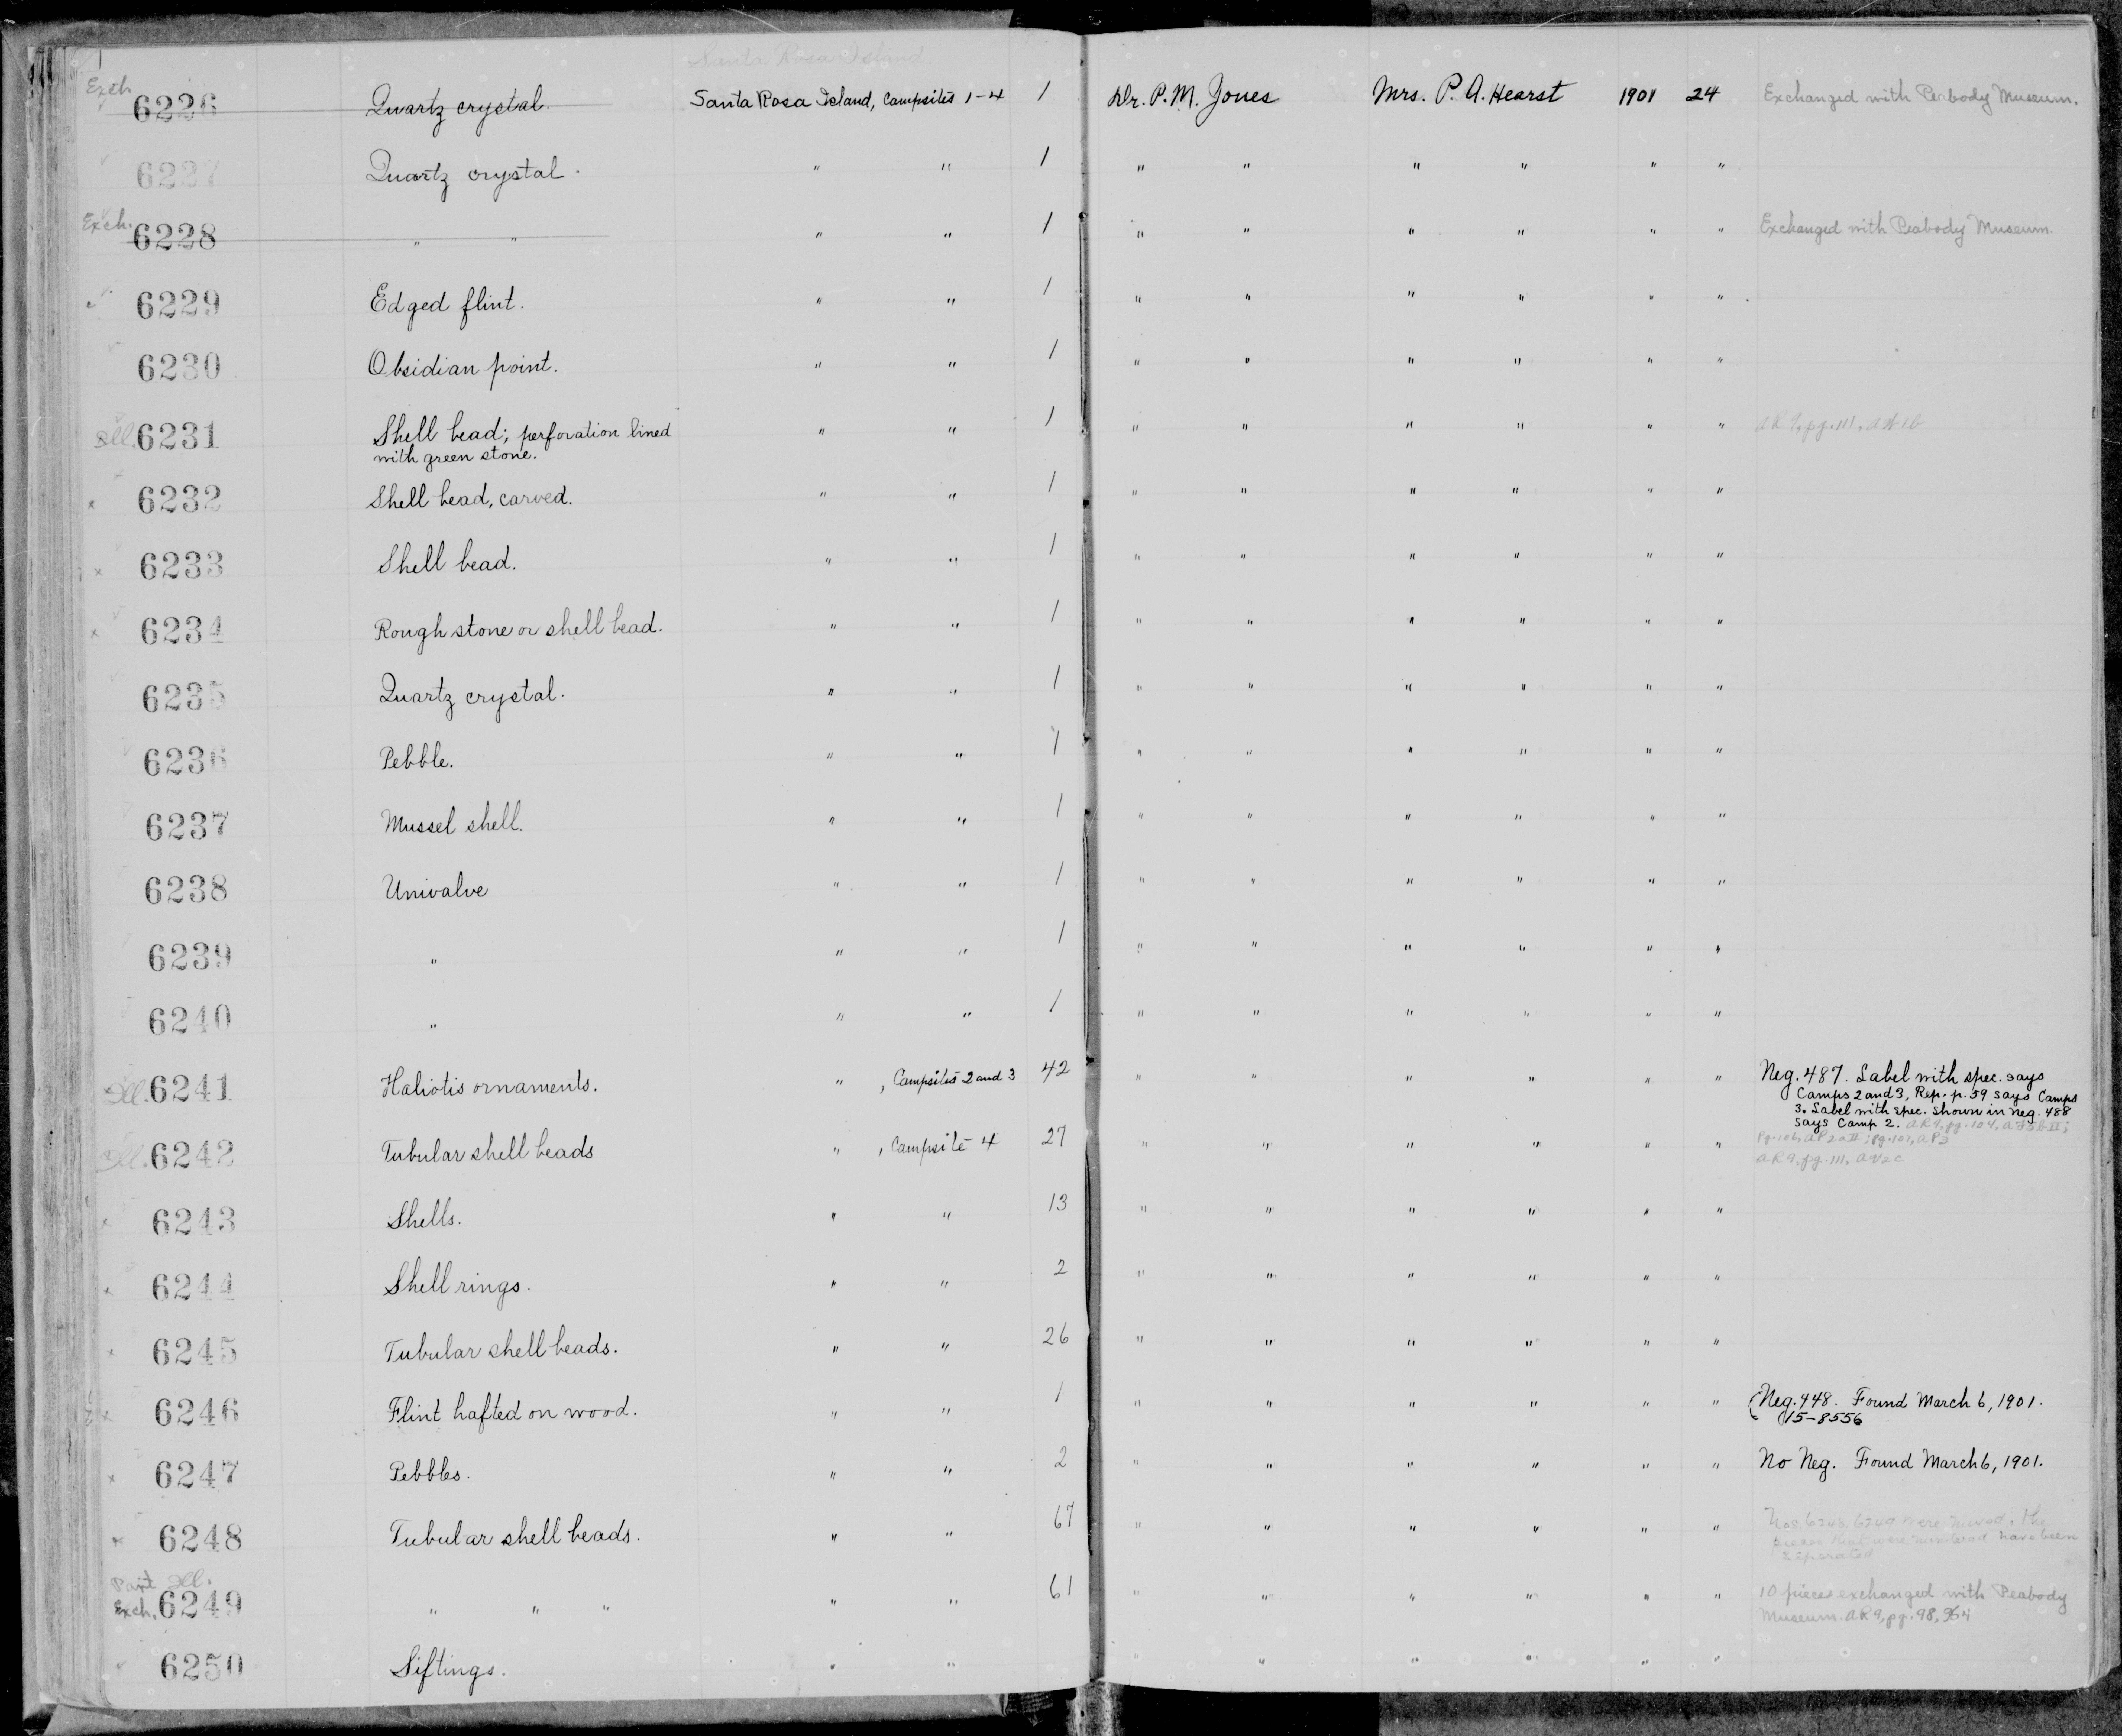 Santa Rosa Island
Exch. 6226 Quartz crystal. Santa Rosa Island, Campsites 1-4 1 Dr. P. M. Jones Mrs. P. A. Hearst 1901 24 Exchanged with Peabody Museum.
6227 Quartz crystal. " " 1 " " " " " "
Exch. 6228 " " " " 1 " " " " " " Exchanged with Peabody Museum.
6229 Edged flint. " " 1 " " " " " "
6230 Obsidian point. " " 1 " " " " " "
Ill. 6231 Shell bead; perforation lined " " 1 " " " " " " AR 9, pg. 111,
with green stone.
x 6232 Shell bead, carved. " " 1 " " " " " "
x 6233 Shell bead. " " 1 " " " " " "
x 6234 Rough stone or shell bead. " " 1 " " " " " "
6235 Quartz crystal. " " 1 " " " " " "
6236 Pebble. " " 1 " " " " " "
6237 Mussel shell. " " 1 " " " " " "
6238 Univalve " " 1 " " " " " "
6239 " " " 1 " " " " " "
6240 " " " 1 " " " " " "
Ill. 6241 Haliotis ornaments. " , Campsites 2 and 3 42 " " " " " " Neg. 487. Label with spec. says
Camps 2 and 3, Rep. p. 59 says Camps
3. Label with spec. shown in neg. 488
says Camp 2. AR 9, pg. 104,
Ill. 6242 Tubular shell beads " , Campsite 4 27 " " " " " " pg. 106, AP2aII; pg. 107, AP3
AR 9, pg. 111,
x 6243 Shells. " " 13 " " " " " "
x 6244 Shell rings. " " 2 " " " " " "
x 6245 Tubular shell beads. " " 26 " " " " " "
x 6246 Flint hafted on wood. " " 1 " " " " " " (Neg. 448. Found March 6, 1901.
15-8556
x 6247 Pebbles. " " 2 " " " " " " No Neg. Found March 6, 1901.
6248 Tubular shell beads. " " 67 " " " " " " Nos. 6248, 6249 were mixed, the
pieces that were numbered have been
separated
Part Ill.
Exch. 6249 " " " " " 61 " " " " " " 10 pieces exchanged with Peabody
Museum. AR 9, pg. 98,
6250 Siftings. " " " " " " " "